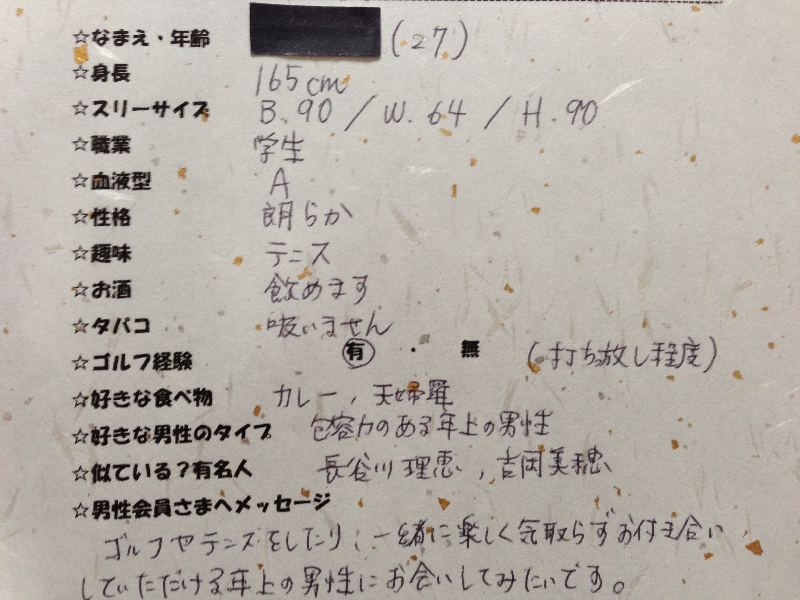 ☆なまえ・年齢 (27)
☆身長 165cm
☆スリーサイズ B.90 / W.64 / H.90
☆職業 学生
☆血液型 A
☆性格 朗らか
☆趣味 テニス
☆お酒 飲めます
☆タバコ 吸いません
☆ゴルフ経験 有・無 (打ち放し程度)
☆好きな食べ物 カレー,天婦羅
☆好きな男性のタイプ 包容力のある年上の男性
☆似ている?有名人 長谷川理恵, 吉岡美穂
☆男性会員さまへメッセージ
ゴルフやテニスをしたり、一緒に楽しく気取らずお付き合い
していただける年上の男性にお会いしてみたいです。